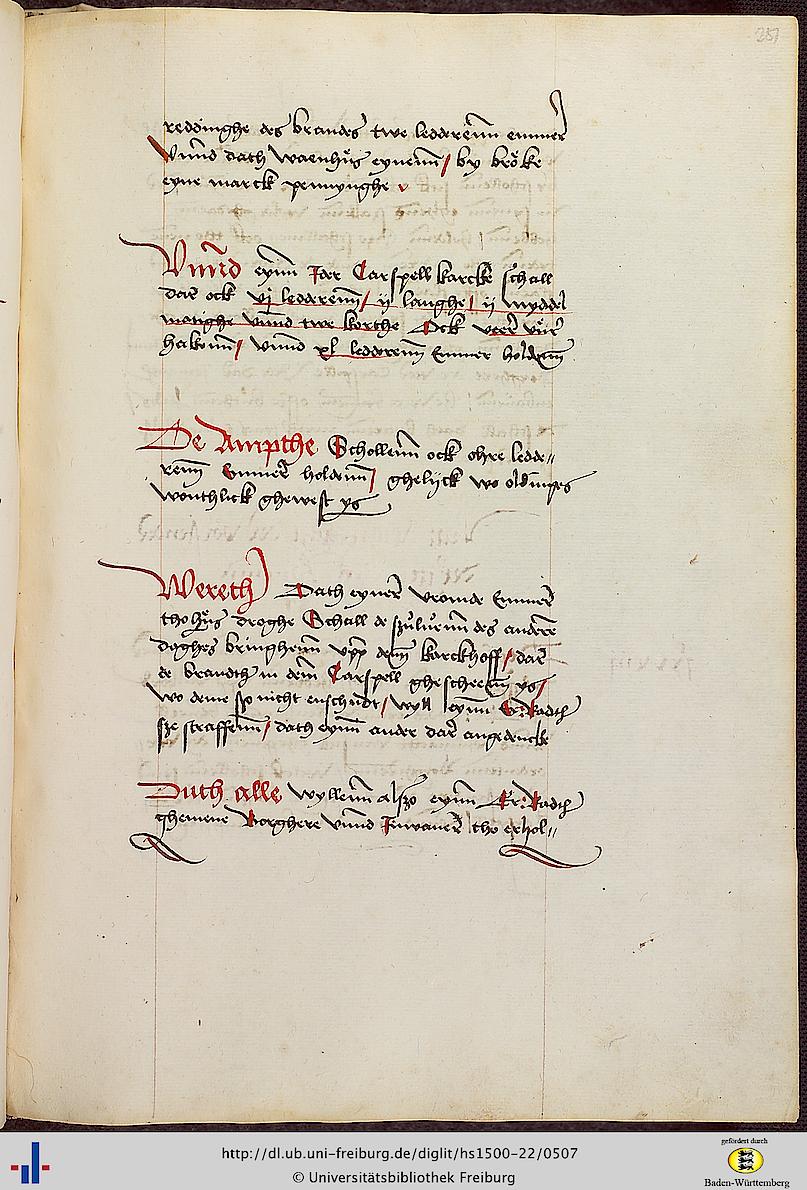 251
reddinghe des brandes tweledderenn emmer
Vnnd dath waenhuß eynenn / by bröke
eyne marck pennynghe
Vnnd eynn Jder Carspell karcke schall
dar ock vj ledderenn / ij langhe / ij myddel
matighe vnnd twe korthe Ock veer vür
hakenn / vnnd xl ledderenn Emmer holdenn
De Ampthe Schollenn ock ohre ledde„
renn Emmer holdenn / ghelijck wo oldinges
wonthlick ghewest ys
Wereth Dath eyner vromde Emmer
tho huß droghe Schall de szuluenn des andere
daghes bringhenn vpp denn karckhoff / dar
de brandth in dem Carspell gheschreenn ys /
wo deme szo nicht enschudt / wyll eynn E: Radth
sze straffenn / dath eynn ander dar angedencke
Duth alle wyllenn alszo eynn Er: Radth
ghemene Borghere vnnd Jnwaner tho erhol„
http://dl.ub.uni-freiburg.de/diglit/hs1500-22/0507
© Universitätsbibliothek Freiburg
gefördert durch
Baden-Württemberg